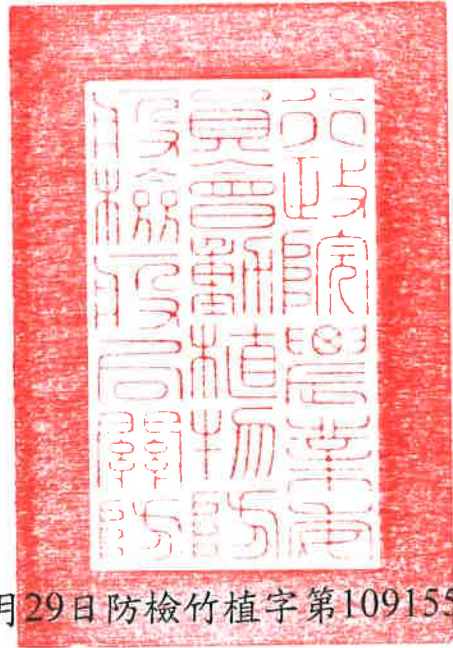 行政院農業委
員會動植物防
疫檢疫局關防
月29日防檢竹植字第109155